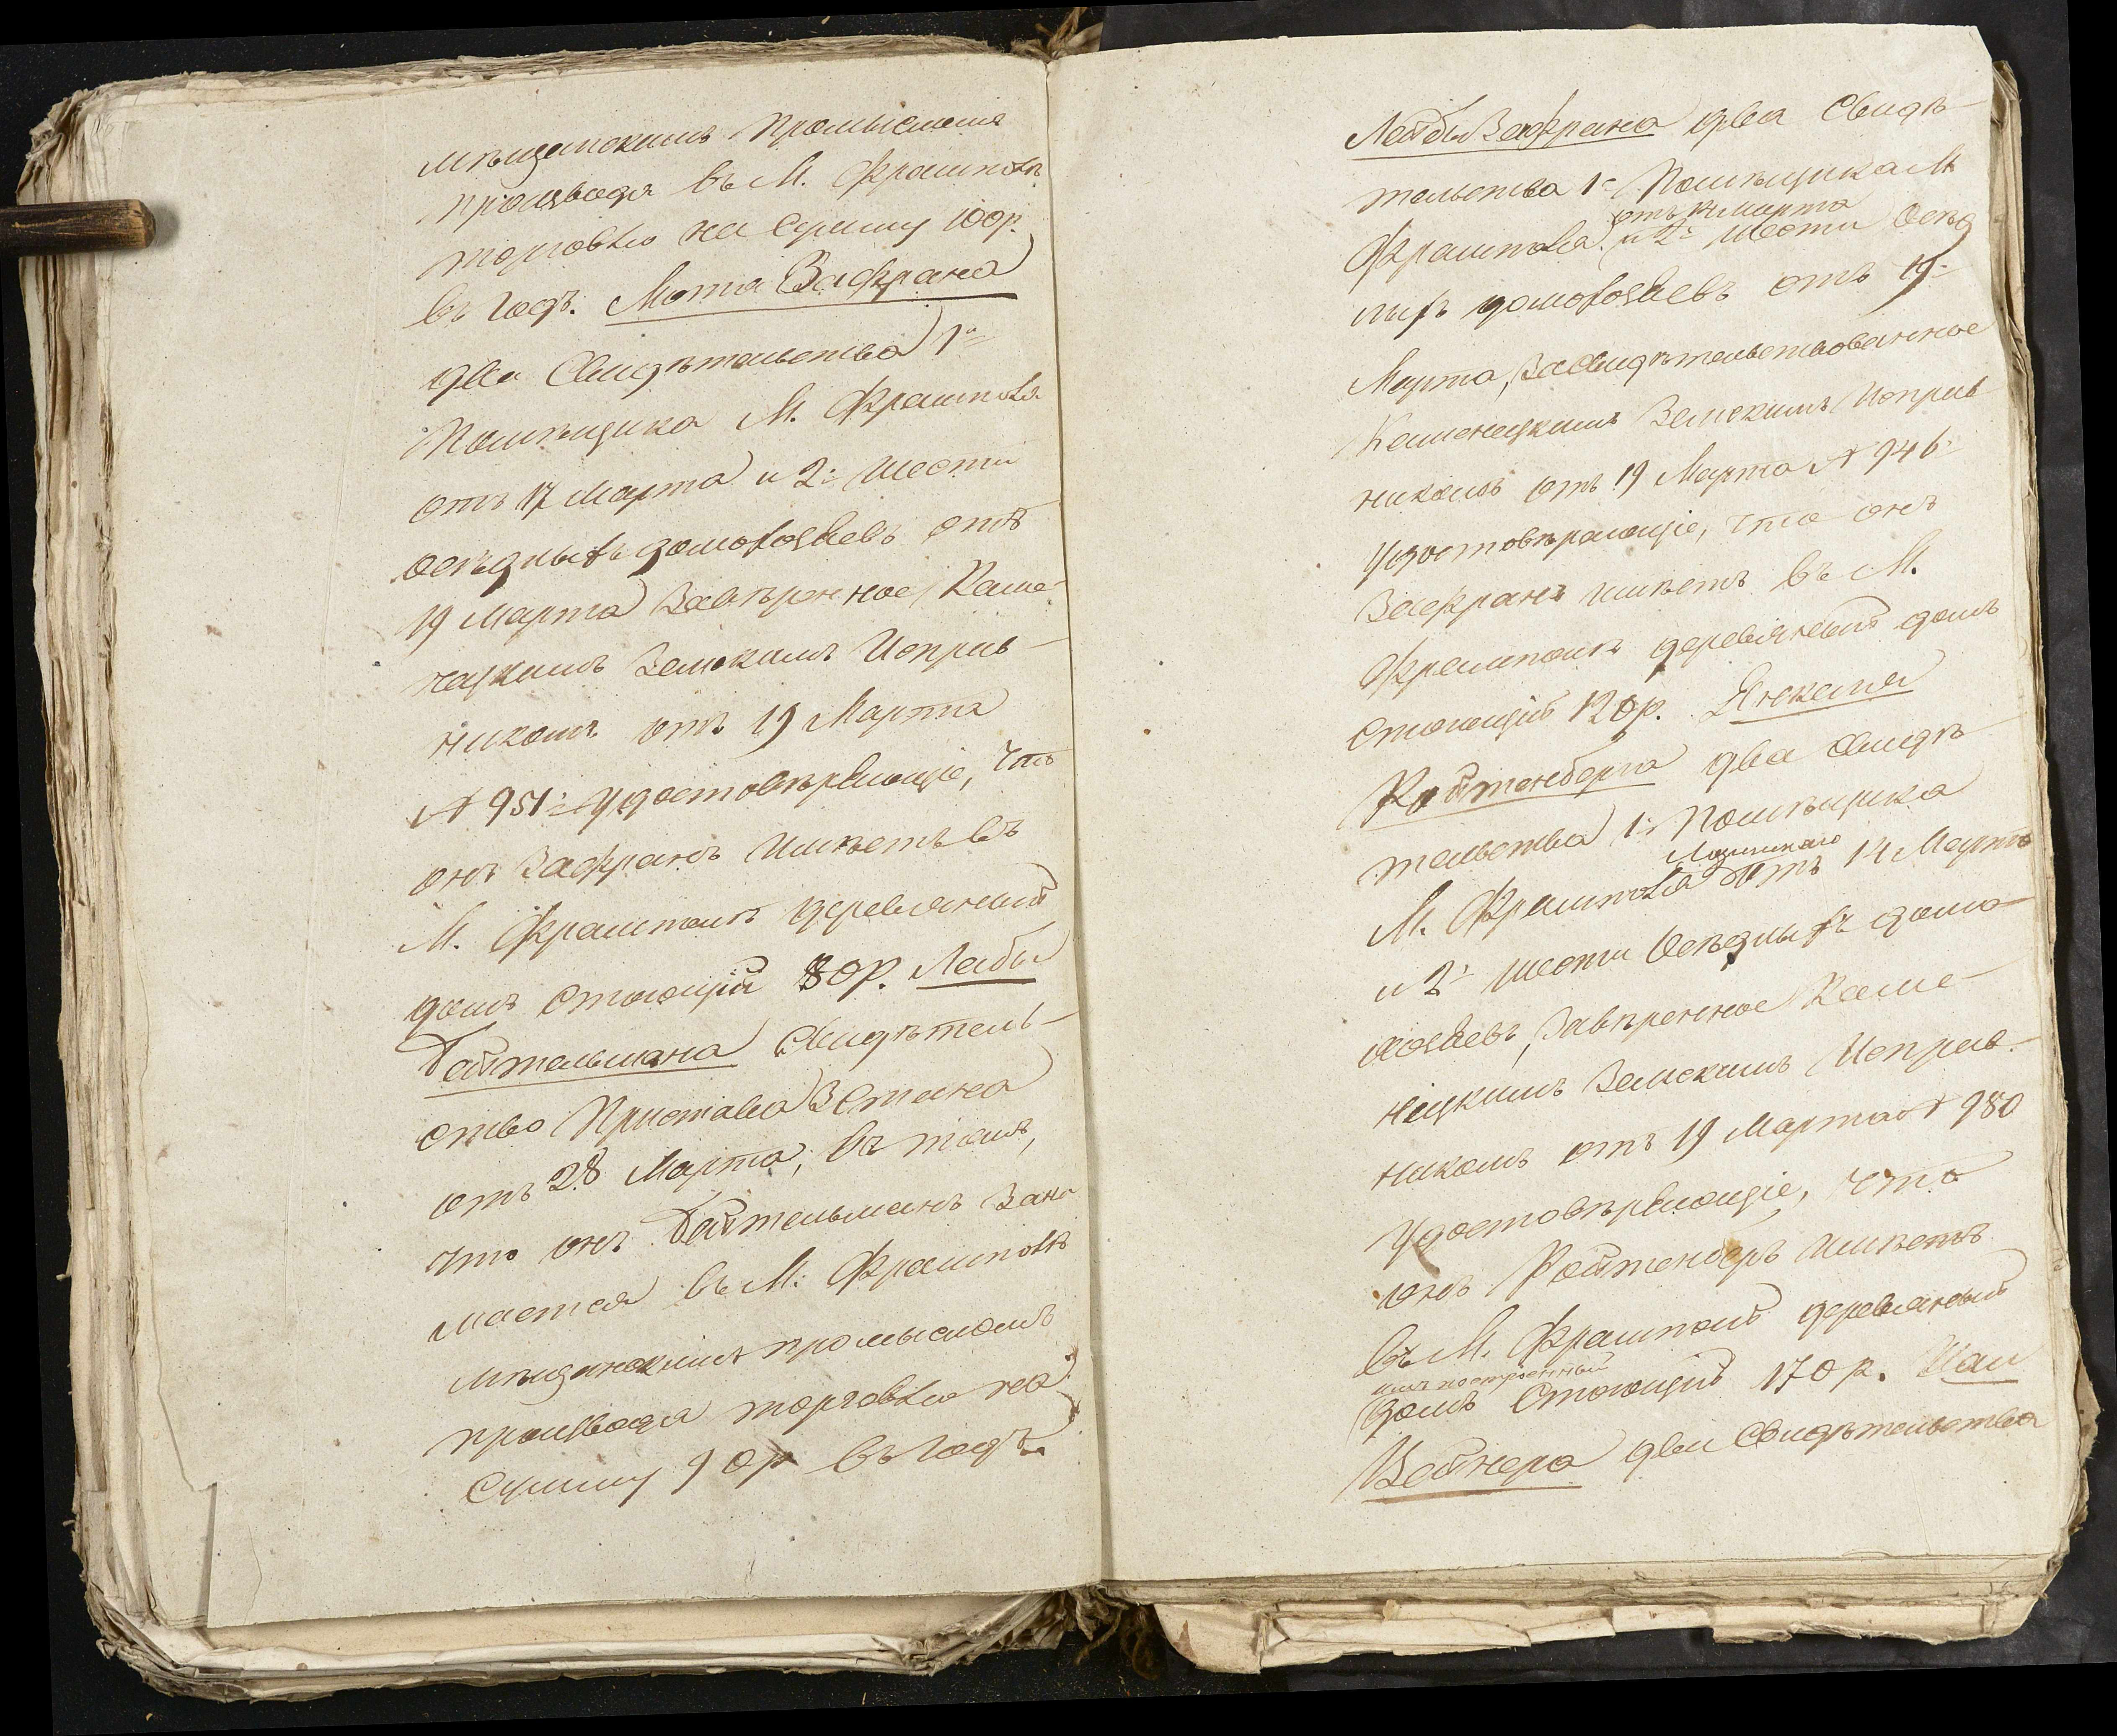 мѣщанскимъ промысломъ
производя въ М. Фрамполѣ
торговлю на сумму 100 р.
въ годъ. Мотя Зафрана
два свидѣтельства 1е
Помѣщика М. Фрамполя
отъ 17 Марта и 2е шести
осѣдлыхъ домохозяевъ отъ
19 Марта завѣренное Каме-
нецкимъ Земскимъ Исправ-
никомъ отъ 19 Марта
№ 951 удостовѣряющіе, что
онъ Зафранъ имѣетъ въ
М. Фрамполѣ деревянный
домъ стоющій 80 р. Лейбы
Тейтельмана свидѣтель-
ство Пристава 3 Стана
отъ 28 Марта, въ томъ,
что онъ Тейтельманъ зани
мается въ М. Фрамполѣ
мѣщанскимъ промысломъ
производя торговлю на
сумму 90 р въ годъ.
Лейбы Зафрана два свидѣ-
тельства 1е Помѣщика М.
отъ 17 Марта
Фрамполя и 2е шести осѣд
лыхъ домохозяевъ отъ 19
Марта, засвидѣтельствованное
Каменецкимъ Земскимъ Исправ
никомъ отъ 19 Марта № 946
удостовѣряющіе, что онъ
Зафранъ имѣетъ въ М.
Фрамполѣ деревянный домъ
стоющій 120 р. Янкеля
Ройтенберга два свидѣ-
тельства 1е Помѣщика
М. Фрамполя отъ 14 Марта
и 2е шести осѣдлыхъ домо-
хозяевъ, завѣренное Каме-
нецкимъ Земскимъ Исправ-
никомъ отъ 19 Марта № 980
удостовѣряющіе, что
онъ Ройтенберъ имѣетъ
въ М. Фрамполѣ деревянный
имъ построенный
домъ стоющій 170 р.
Вейнера два свидѣтельства